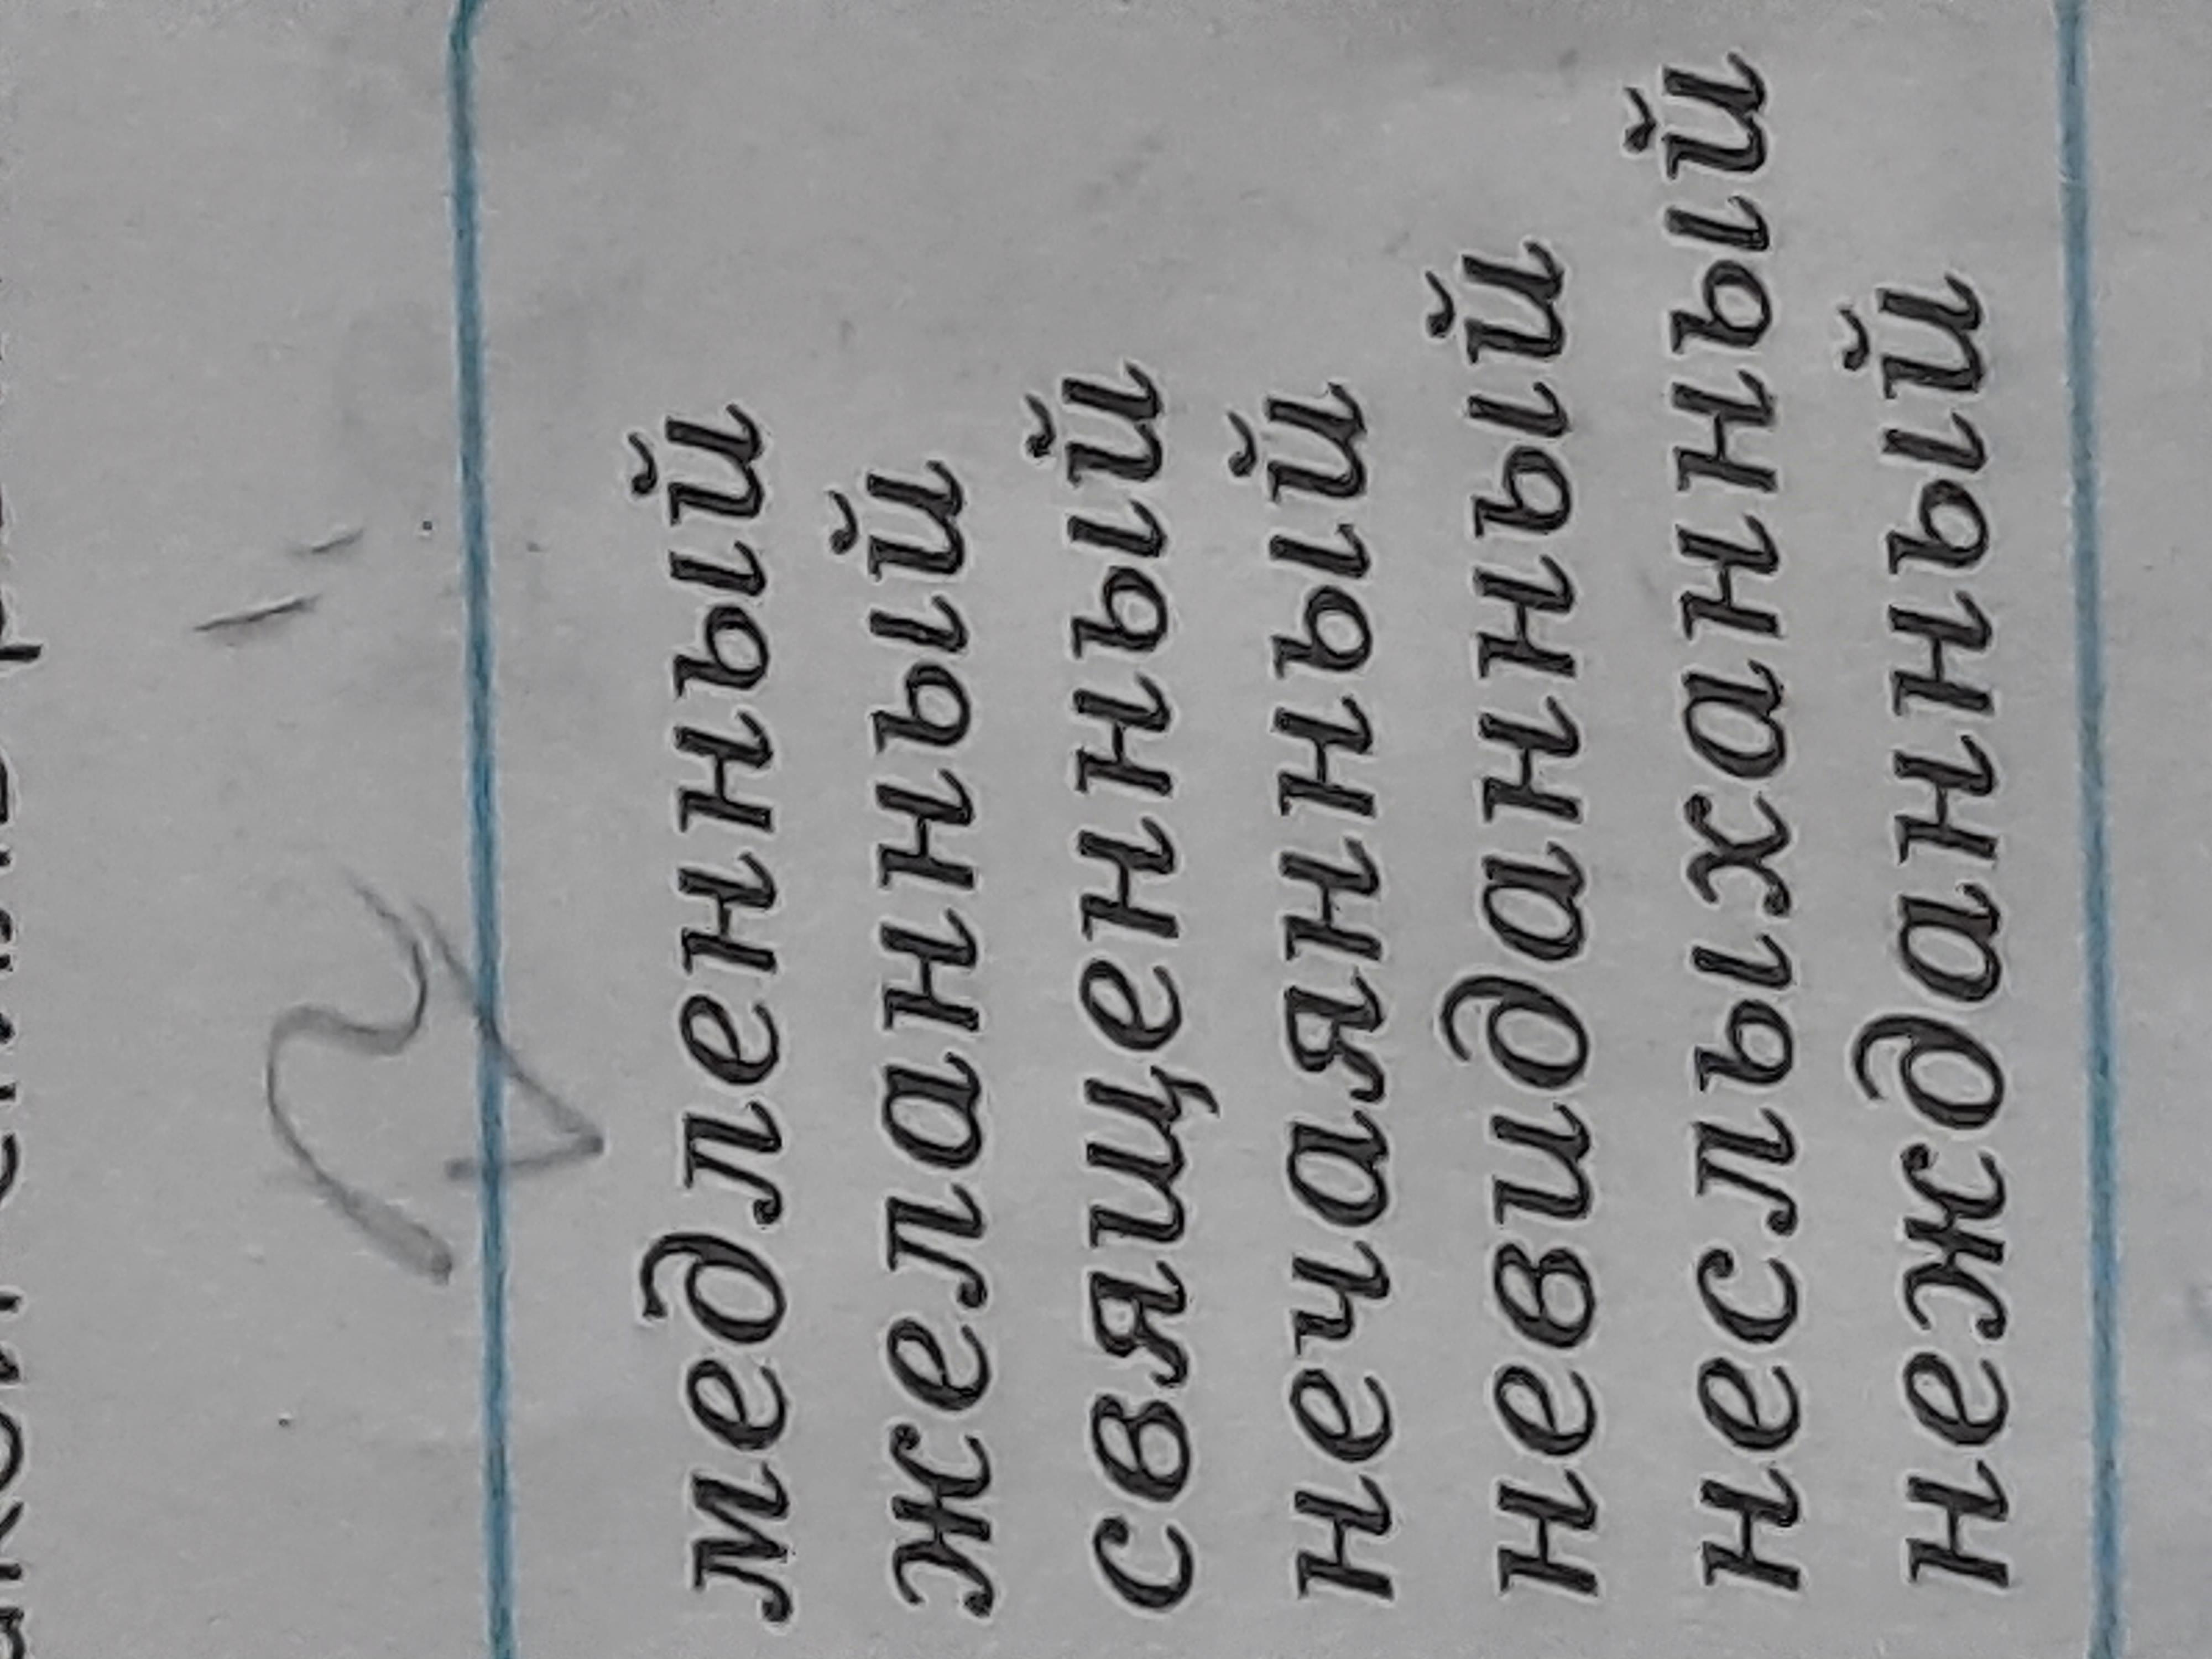 медленный
желанный
священный
нечаянный
невиданный
неслыханный
нежданный